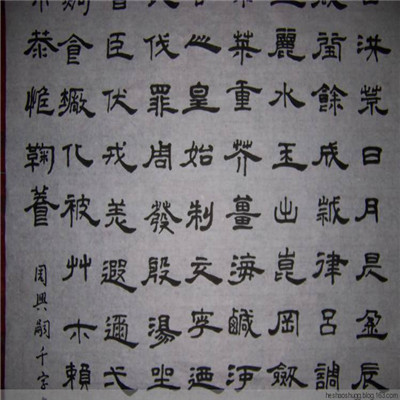 洪荒日月昃盈辰
閏餘成歲律呂調
麗水玉出崑岡劍
菜重芥薑海鹹河
皇始制文字迺
伐罪周發殷湯坐
臣伏戎羌遐邇弌
駒食場化被艸木賴
恭惟鞠養
周興嗣千字
heshaoshugg.blog.163.com